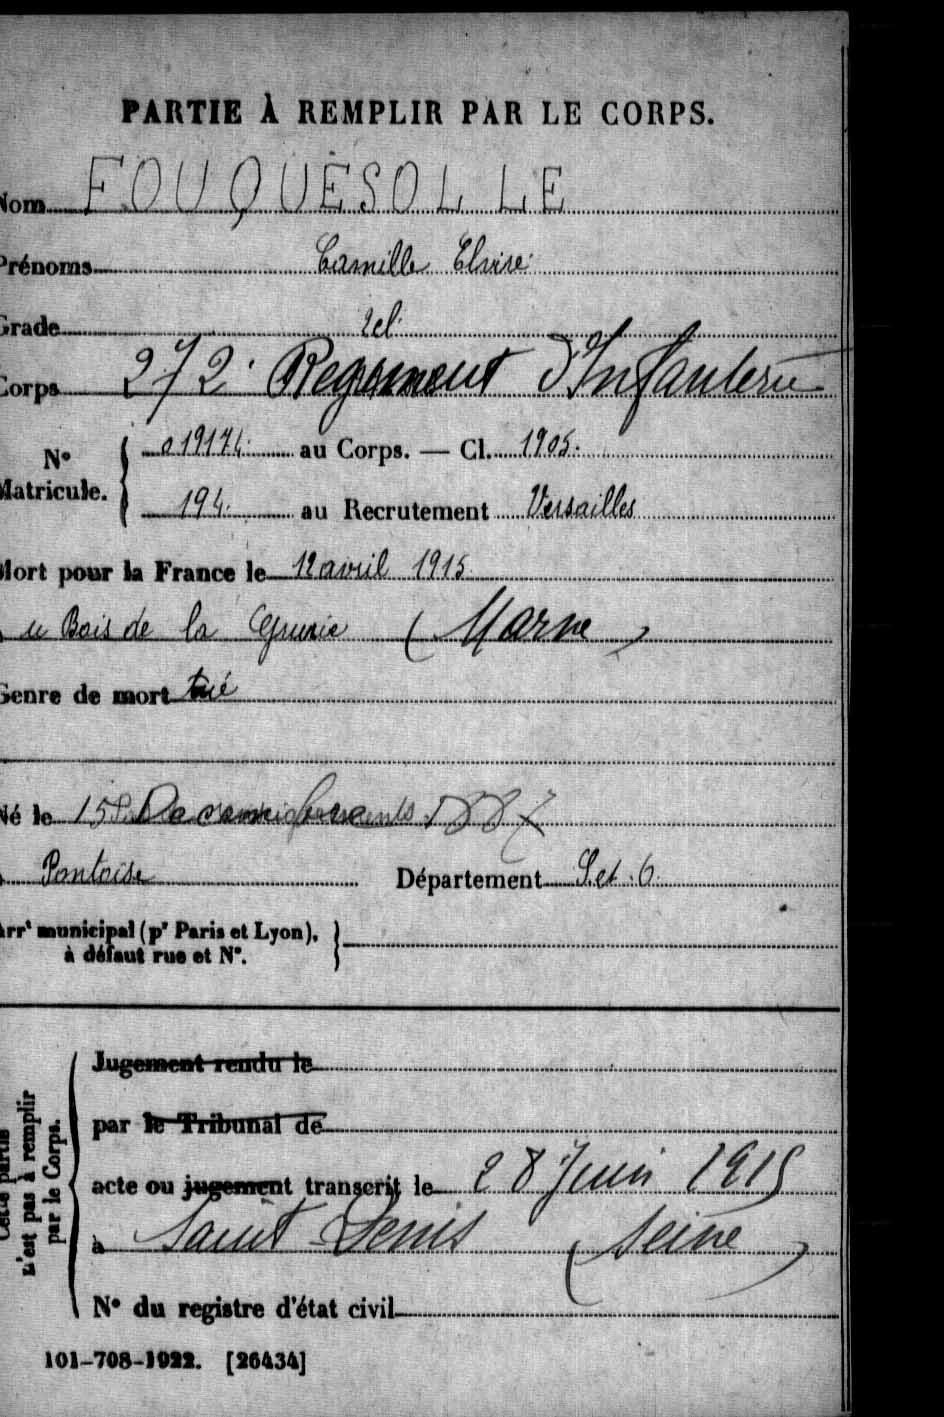 PARTIE À REMPLIR PAR LE CORPS.
Nom FOUQUESOLLE
Prénoms Camille
Grade
Corps 272e Regiment d'Infanterie
N° Matricule. 019174 au Corps. — Cl. 1905.
194. au Recrutement Versailles
Mort pour la France le 12 avril 1915
Bois de la Grurie (Marne)
Genre de mort tué
Né le 15 Decembre 1887
Pontoise Département S. et O.
Arrt municipal (pr Paris et Lyon),
à défaut rue et N°.
Cette partie
n'est pas à remplir
par le Corps.
Jugement rendu le
par le Tribunal de
acte ou jugement transcrit le 28 Juin 1915
à Saint Denis (Seine)
N° du registre d'état civil
101-708-1922. [26434]